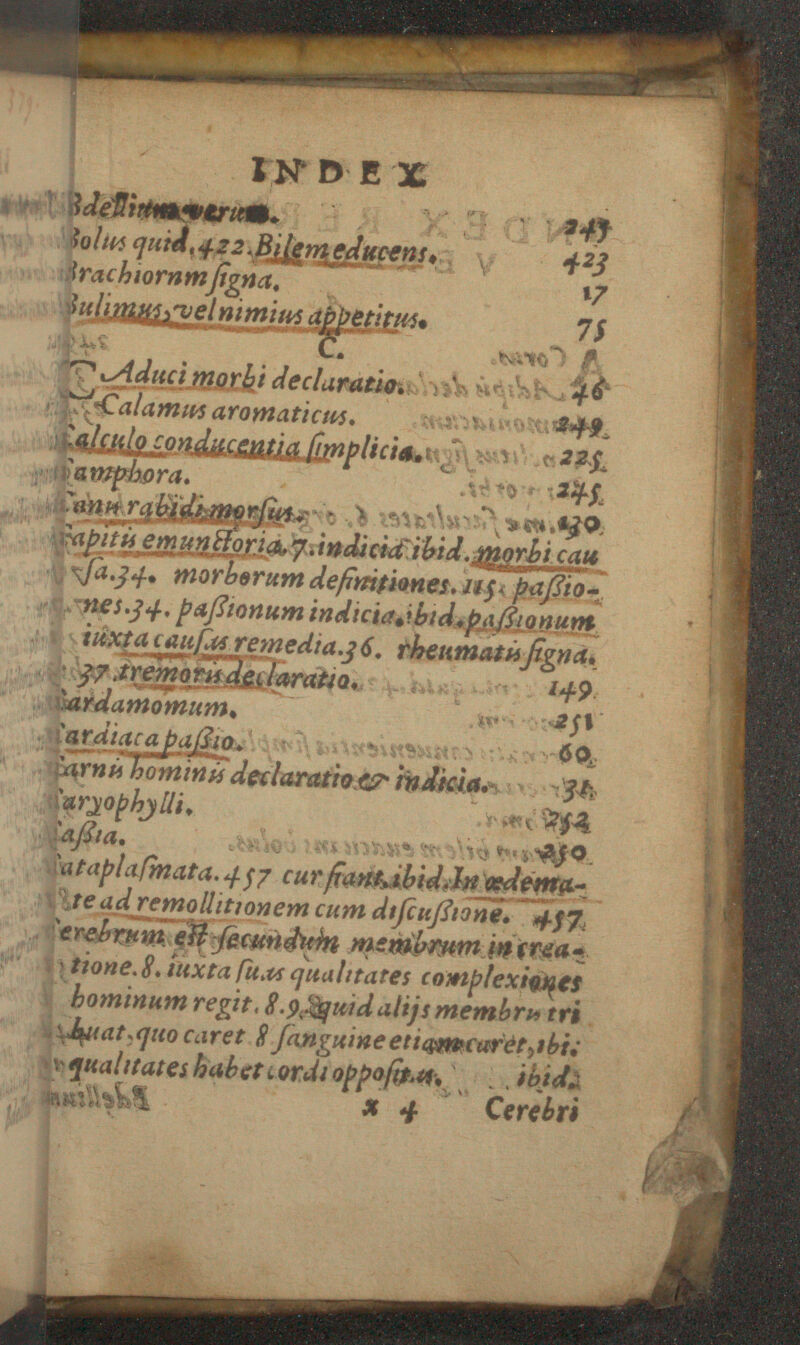 INDEX
Bdellium verum. 243
Bolus quid, 422. Bilem educens. 423
Brachiorum signa, 17
Bulimus, vel nimius appetitus. 75
C.
CAduci morbi declaratio. 46
Calamus aromaticus. 249.
Calculo conducentia simplicia, 225.
Camphora. 245.
Canis rabidi morsus 430.
Capitis emunctoria, 7. indicia ibid. morbi cau
sa. 34. morborum definitiones. passio-
nes. 34. passionum indicia, ibid. passionum
iuxta causas remedia. 36. rheumatis signa,
37. tremoris declaratio. 149.
Cardamomum, 251
Cardiaca passio. 60.
Carnis hominis declaratio & indicia.
Caryophylli, 252
Cassia.
Cataplasmata. 457 cur fiant, ibid. In œdema-
te ad remollitionem cum discussione. 457.
Cerebrum est secundum membrum in crea-
tione. 8. iuxta suas qualitates complexiones
hominum regit. 8. 9. quid alijs membris tri
buat, quo caret 8 sanguine etiam caret, ibi.
qualitates habet cordi oppositas, ibid.
x 4 Cerebri